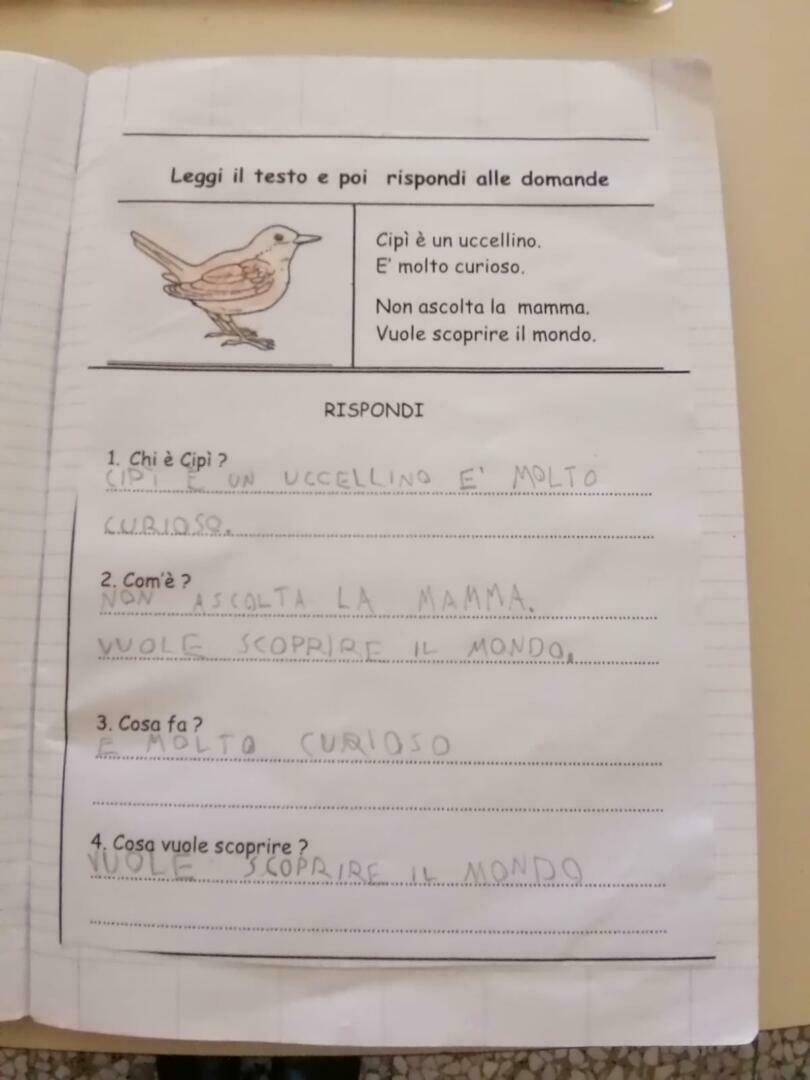 Leggi il testo e poi rispondi alle domande
Cipì è un uccellino.
E' molto curioso.
Non ascolta la mamma.
Vuole scoprire il mondo.
RISPONDI
1. Chi è Cipì ?
CIPÌ È UN UCCELLINO E' MOLTO
CURIOSO.
2. Com'è ?
NON ASCOLTA LA MAMMA.
VUOLE SCOPRIRE IL MONDO.
3. Cosa fa ?
E MOLTO CURIOSO
4. Cosa vuole scoprire ?
VUOLE SCOPRIRE IL MONDO